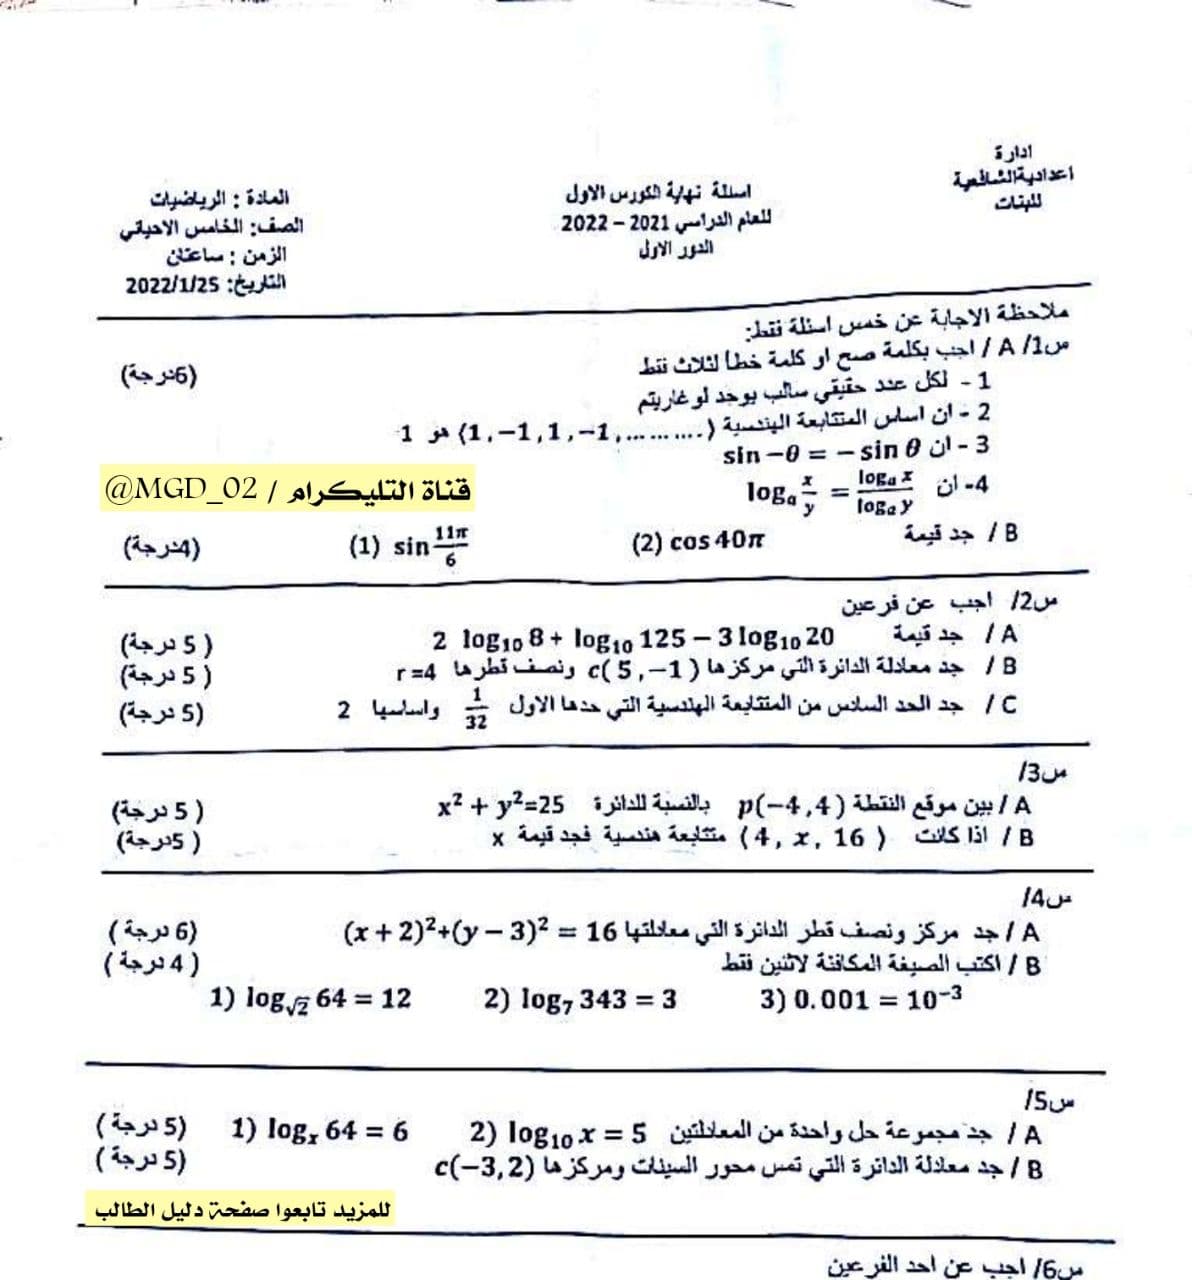 ادارة
اعدادية الشافعية
للبنات
اسئلة نهاية الكورس الاول
للعام الدراسي 2021 – 2022
الدور الاول
المادة : الرياضيات
الصف: الخامس الاحيائي
الزمن : ساعتان
التاريخ: 2022/1/25
ملاحظة الاجابة عن خمس اسئلة فقط:
س1/ A / اجب بكلمة صح او كلمة خطأ لثلاث فقط (6درجة)
1 - لكل عدد حقيقي سالب يوجد لوغاريتم
2 - ان اساس المتتابعة الهندسية (1, −1, 1, −1, ……….) هو 1
3 - ان sin −θ = − sin θ
4- ان logₐ x/y = logₐ x / logₐ y
قناة التليكرام / @MGD_02
B / جد قيمة (2) cos 40π (1) sin 11π/6 (4درجة)
س2/ اجب عن فرعين
A / جد قيمة 2 log₁₀ 8 + log₁₀ 125 − 3 log₁₀ 20 (5 درجة)
B / جد معادلة الدائرة التي مركزها c(5, −1) ونصف قطرها r=4 (5 درجة)
C / جد الحد السادس من المتتابعة الهندسية التي حدها الاول 1/32 واساسها 2 (5 درجة)
س3/
A / بين موقع النقطة p(−4,4) بالنسبة للدائرة x² + y²=25 (5 درجة)
B / اذا كانت (4, x, 16) متتابعة هندسية فجد قيمة x (5درجة)
س4/
A / جد مركز ونصف قطر الدائرة التي معادلتها (x + 2)²+(y − 3)² = 16 (6 درجة)
B / اكتب الصيغة المكافئة لاثنين فقط (4 درجة)
1) log√2 64 = 12 2) log₇ 343 = 3 3) 0.001 = 10⁻³
س5/
A / جد مجموعة حل واحدة من المعادلتين 2) log₁₀ x = 5 1) logₓ 64 = 6 (5 درجة)
B / جد معادلة الدائرة التي تمس محور السينات ومركزها c(−3,2) (5 درجة)
للمزيد تابعوا صفحة دليل الطالب
س6/ اجب عن احد الفرعين